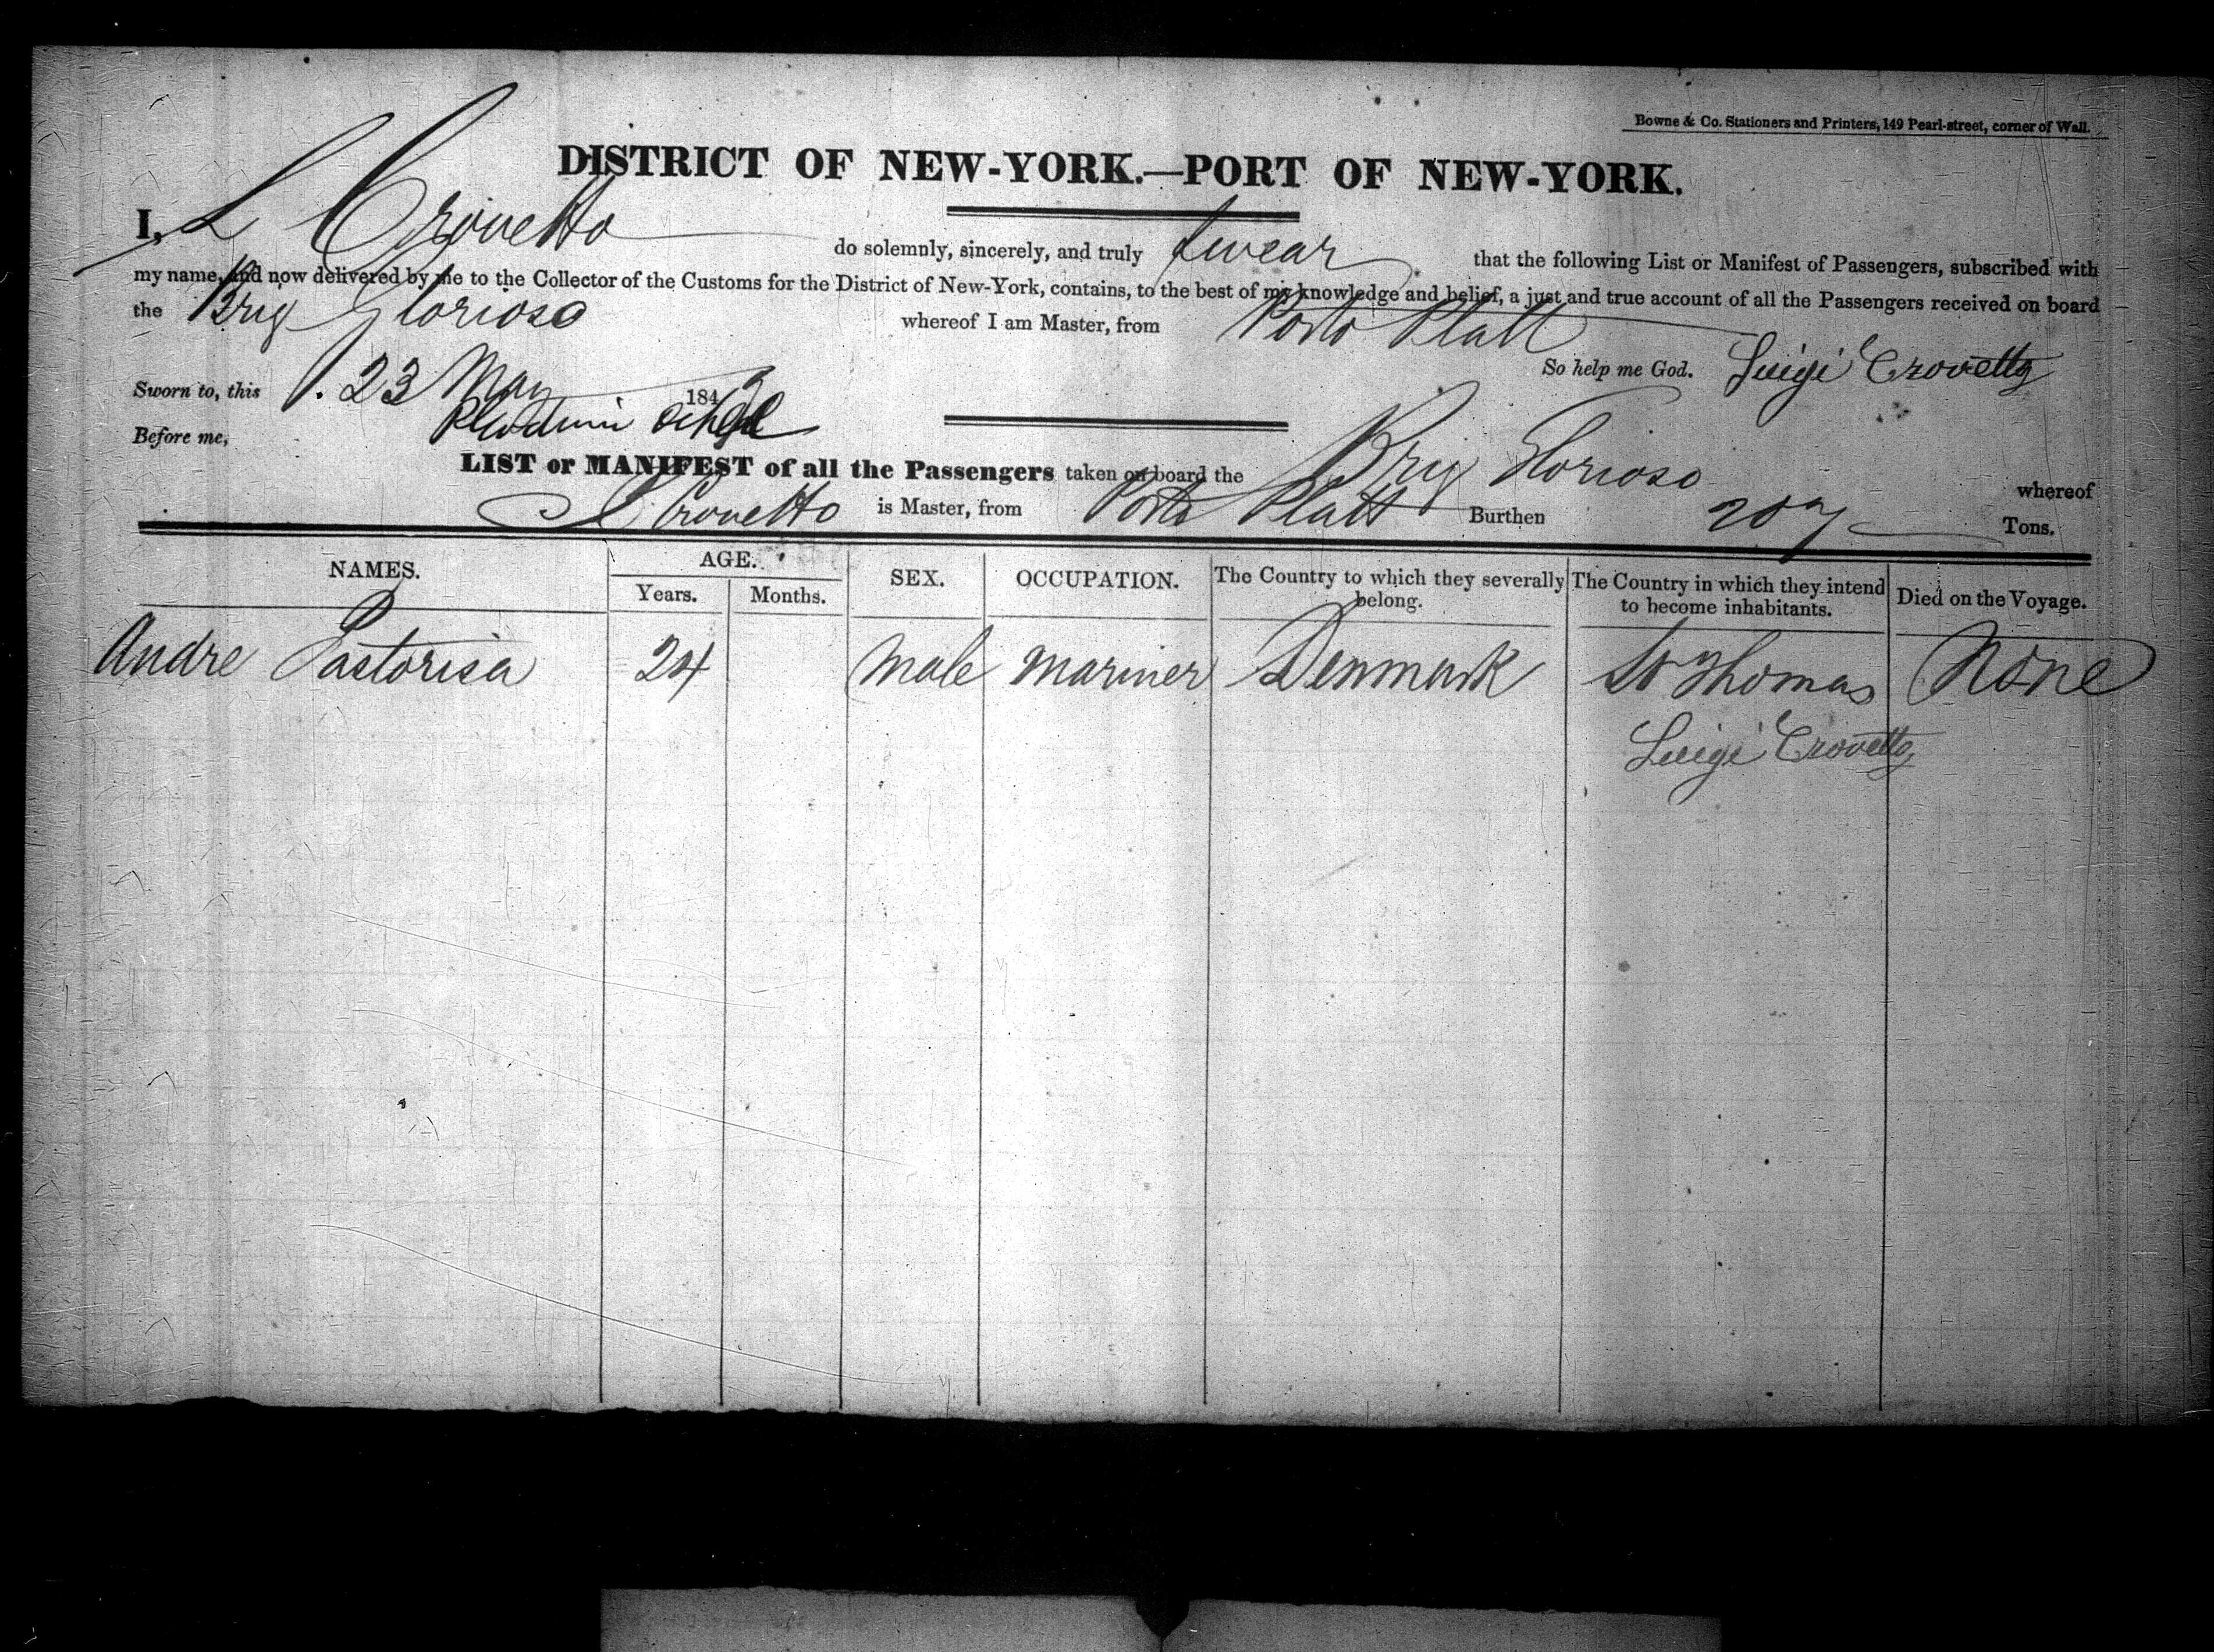 Bowne & Co. Stationers and Printers, 149 Pearl-street, corner of Wall.
DISTRICT OF NEW-YORK.—PORT OF NEW-YORK.
I, L Crovetto do solemnly, sincerely, and truly swear that the following List or Manifest of Passengers, subscribed with
my name, and now delivered by me to the Collector of the Customs for the District of New-York, contains, to the best of my knowledge and belief, a just and true account of all the Passengers received on board
the Brig Glorioso whereof I am Master, from Porto Platt
So help me God. Luigi Crovetto
Sworn to, this 23 May 184
Before me,
LIST or MANIFEST of all the Passengers taken on board the Brig Glorioso whereof
L Crovetto is Master, from Porto Platt Burthen 207 Tons.
NAMES. AGE. SEX. OCCUPATION. The Country to which they severally belong. The Country in which they intend to become inhabitants. Died on the Voyage.
Years. Months.
Andre Pastorisa 24 Male Mariner Denmark St Thomas None
Luigi Crovetto